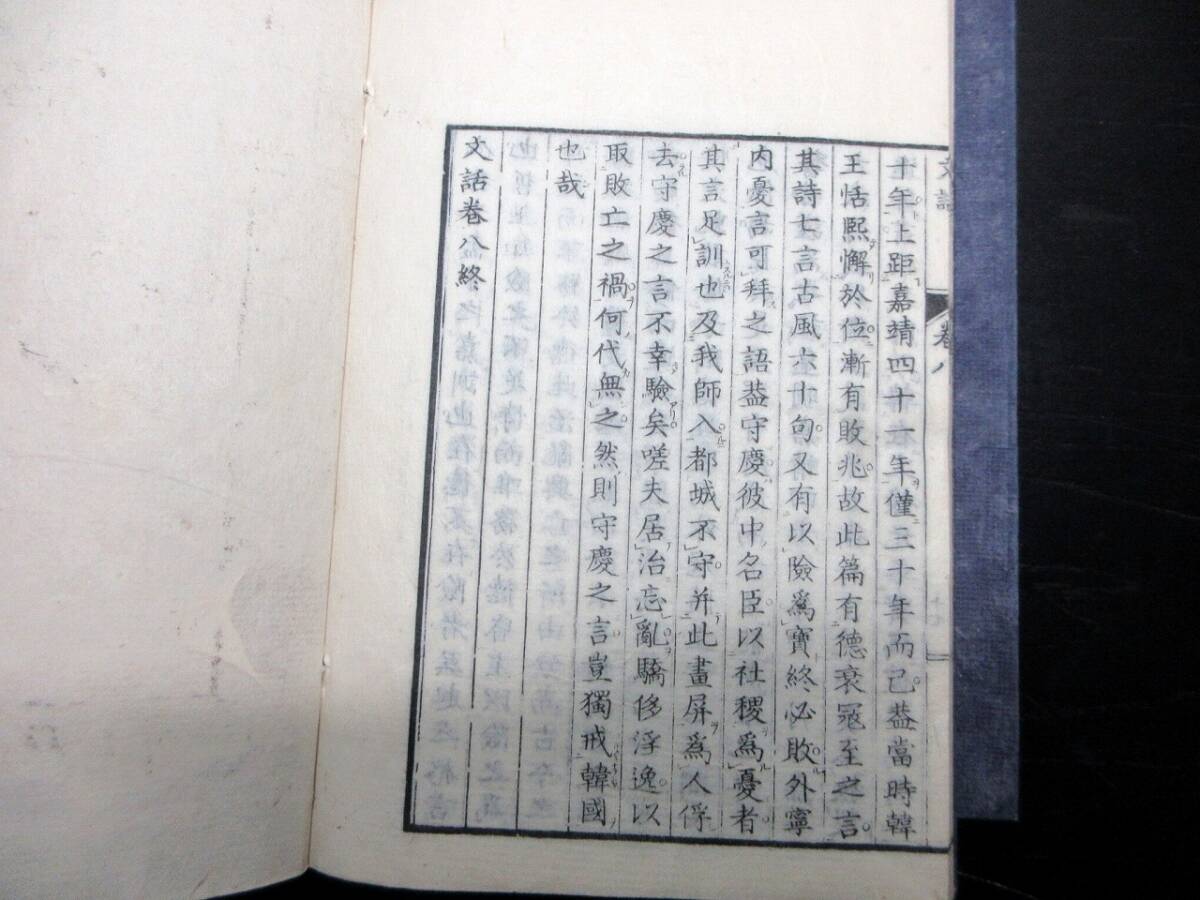 十年上距嘉靖四十一年僅三十年而已葢當時韓
王恬熙懈於位漸有敗兆故此篇有德衰冦至之言
其詩七言古風六十句又有以險爲寶終必敗外寧
内憂言可拜之語葢守慶彼中名臣以社稷爲憂者
其言足訓也及我師入都城不守并此畫屏爲人俘
去守慶之言不幸驗矣嗟夫居治忘亂驕侈浮逸以
取敗亡之禍何代無之然則守慶之言豈獨戒韓國
也哉
文話卷八終